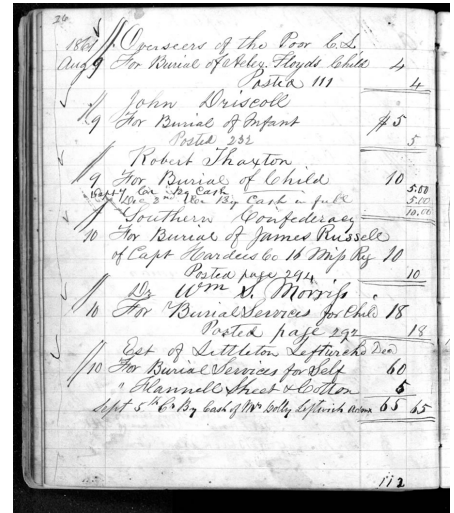 26
1861 Overseers of the Poor C.L.
Aug 9 For Burial of Alex. Floyds Child 4
Posted 111 4
John Driscoll
9 For Burial of Infant $5
Posted 232 5
Robert Thaxton
9 For Burial of Child 10
By Cash 5.00
Dec 2nd By Cash in full 5.00
Southern Confederacy 10.00
10 For Burial of James Russell
of Capt Hardees Co 16 Miss Rg 10
Posted page 294 10
Dr Wm S. Morris
10 For Burial Services for Child 18
Posted page 292 18
Est of Littleton Leftwich Decd
10 For Burial Services for Self 60
" Flannell Sheet & Cotton 5
Sept 5th Cr By Cash of Mrs Leftwich 65 65
112